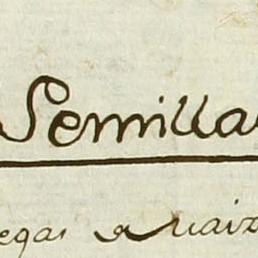 Semilla
egas a Maiz